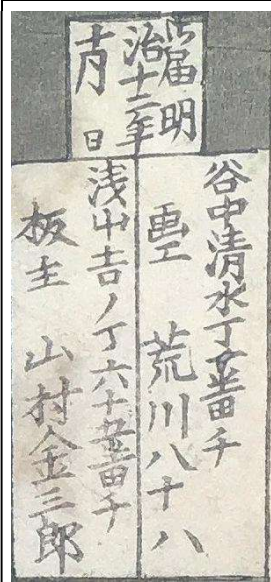 御届 明
治十二年
月 日
谷中清水丁五番チ
画工 荒川八十八
浅中吉ノ丁六十五番チ
板主 山村金三郎